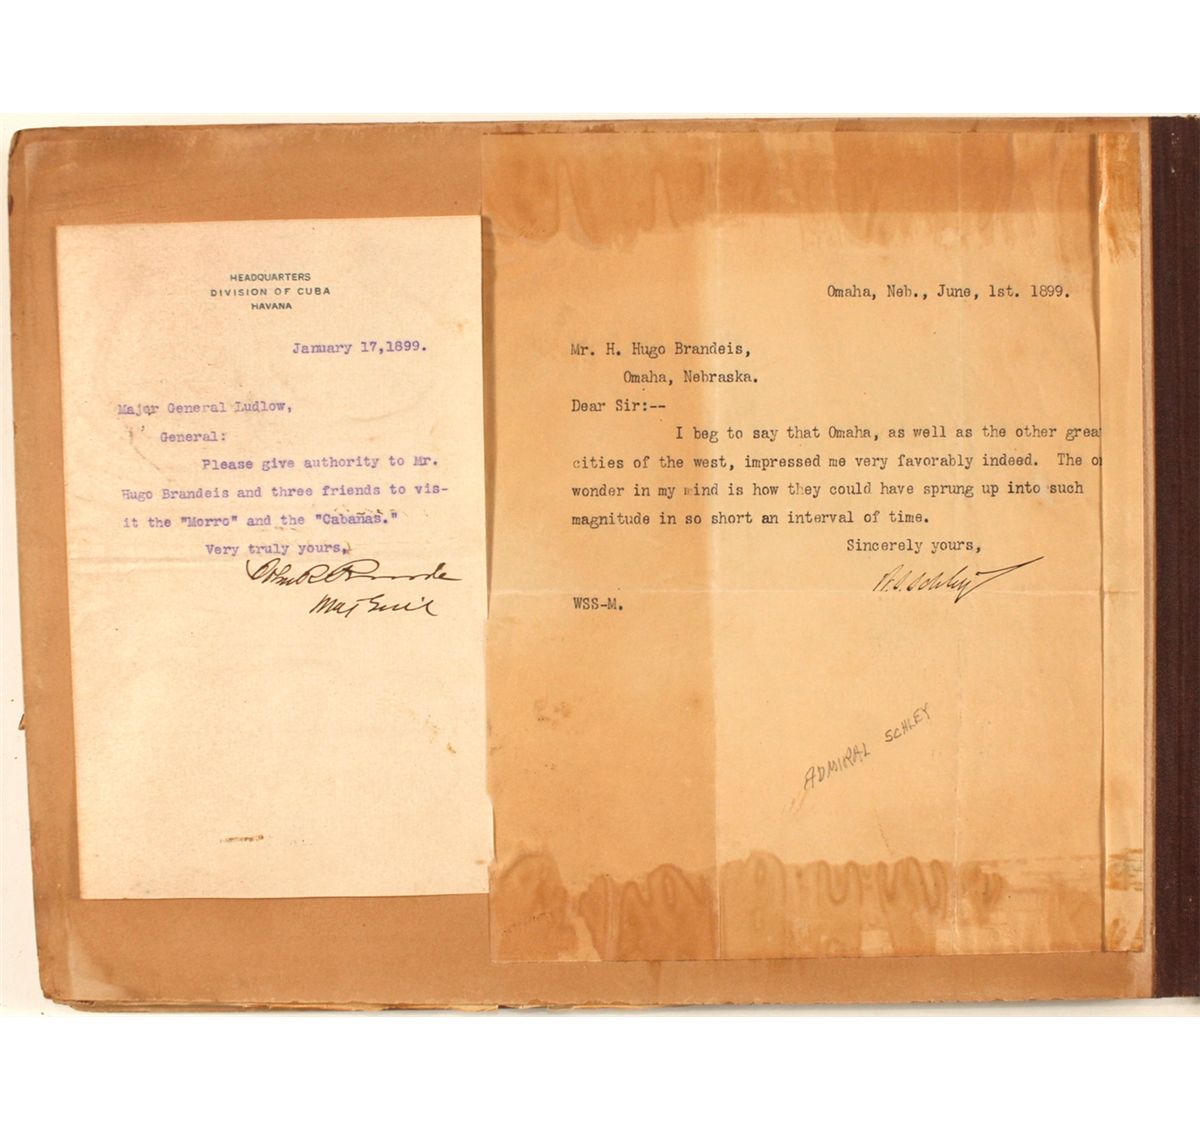 HEADQUARTERS
DIVISION OF CUBA
HAVANA
January 17,1899.
Major General Ludlow,
General:
Please give authority to Mr.
Hugo Brandeis and three friends to vis-
it the "Morro" and the "Cabañas."
Very truly yours,
John R Brooke
Maj Gen'l
Omaha, Neb., June, 1st. 1899.
Mr. H. Hugo Brandeis,
Omaha, Nebraska.
Dear Sir:--
I beg to say that Omaha, as well as the other grea
cities of the west, impressed me very favorably indeed. The o
wonder in my mind is how they could have sprung up into such
magnitude in so short an interval of time.
Sincerely yours,
W.S. Schley
WSS-M.
ADMIRAL SCHLEY